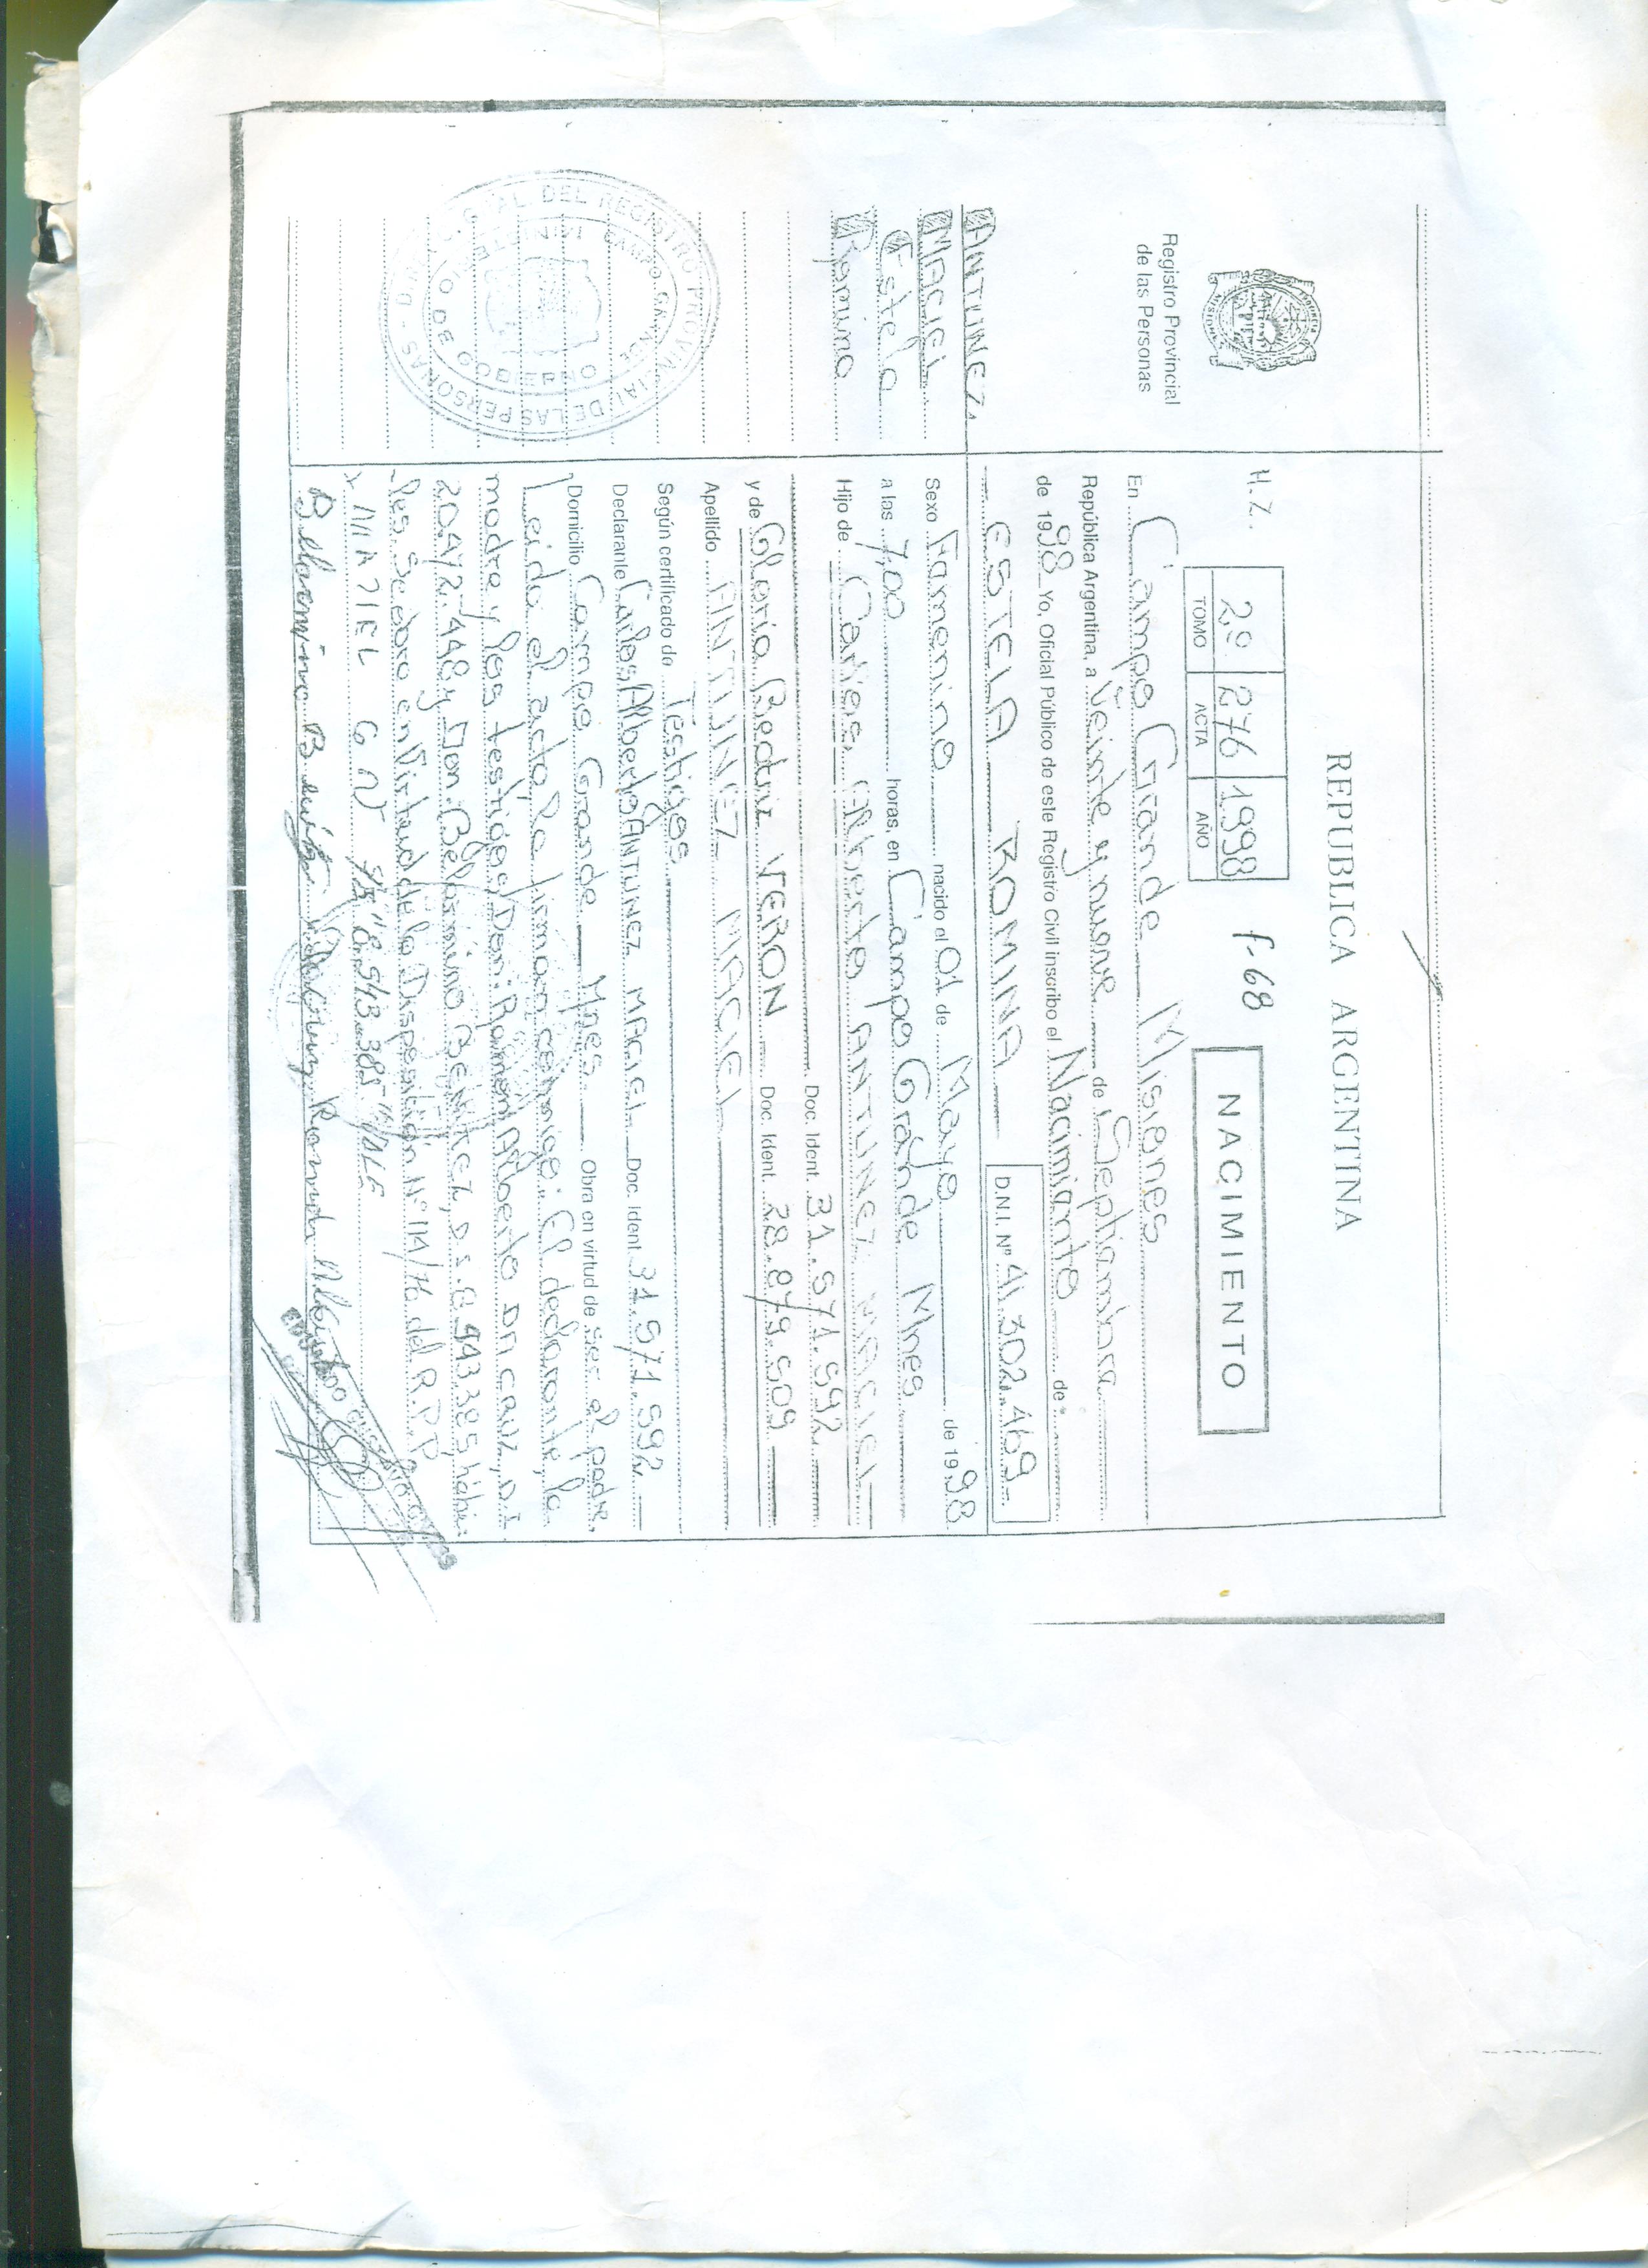 REPUBLICA ARGENTINA
Registro Provincial
de las Personas
H.Z.
2º 276 1998 f-68
TOMO ACTA AÑO
NACIMIENTO
En Campo Grande Misiones
República Argentina, a Veinte y nueve de Septiembre
de 1998 Yo, Oficial Público de este Registro Civil inscribo el Nacimiento de
ESTELA ROMINA
D.N.I. Nº 41.302.469
ANTUNEZ
MACIEL
Estela
Romina
Sexo Famenino nacido el 01 de Mayo de 1998
a las 7,00 horas, en Campo Grande Mnes
Hijo de Carlos Alberto ANTUNEZ MACIEL
Doc. Ident. 31.571.592
y de Gloria Beatriz VERON Doc. Ident. 28.879.509
Apellido ANTUNEZ MACIEL
Según certificado de Testigos
Declarante Carlos Alberto ANTUNEZ MACIEL Doc. Ident. 31.571.592
Domicilio Campo Grande Mnes. Obra en virtud de ser el padre.
Leida el acta, la firman conmigo: El declarante, la
madre y los testigos Don: Ramon Alberto DA CRUZ, D.I.
20.472.448 y Don: Belarmino BENITEZ, D.I. 8.943.385 hábi-
les. Se obro en Virtud de la Disposición Nº 114/76 del R.P.P
MAZIEL G N "8.543.385" VALE
Belarmino Ramon Alberto
REGISTRO PROVINCIAL DE LAS PERSONAS
CAMPO GRANDE